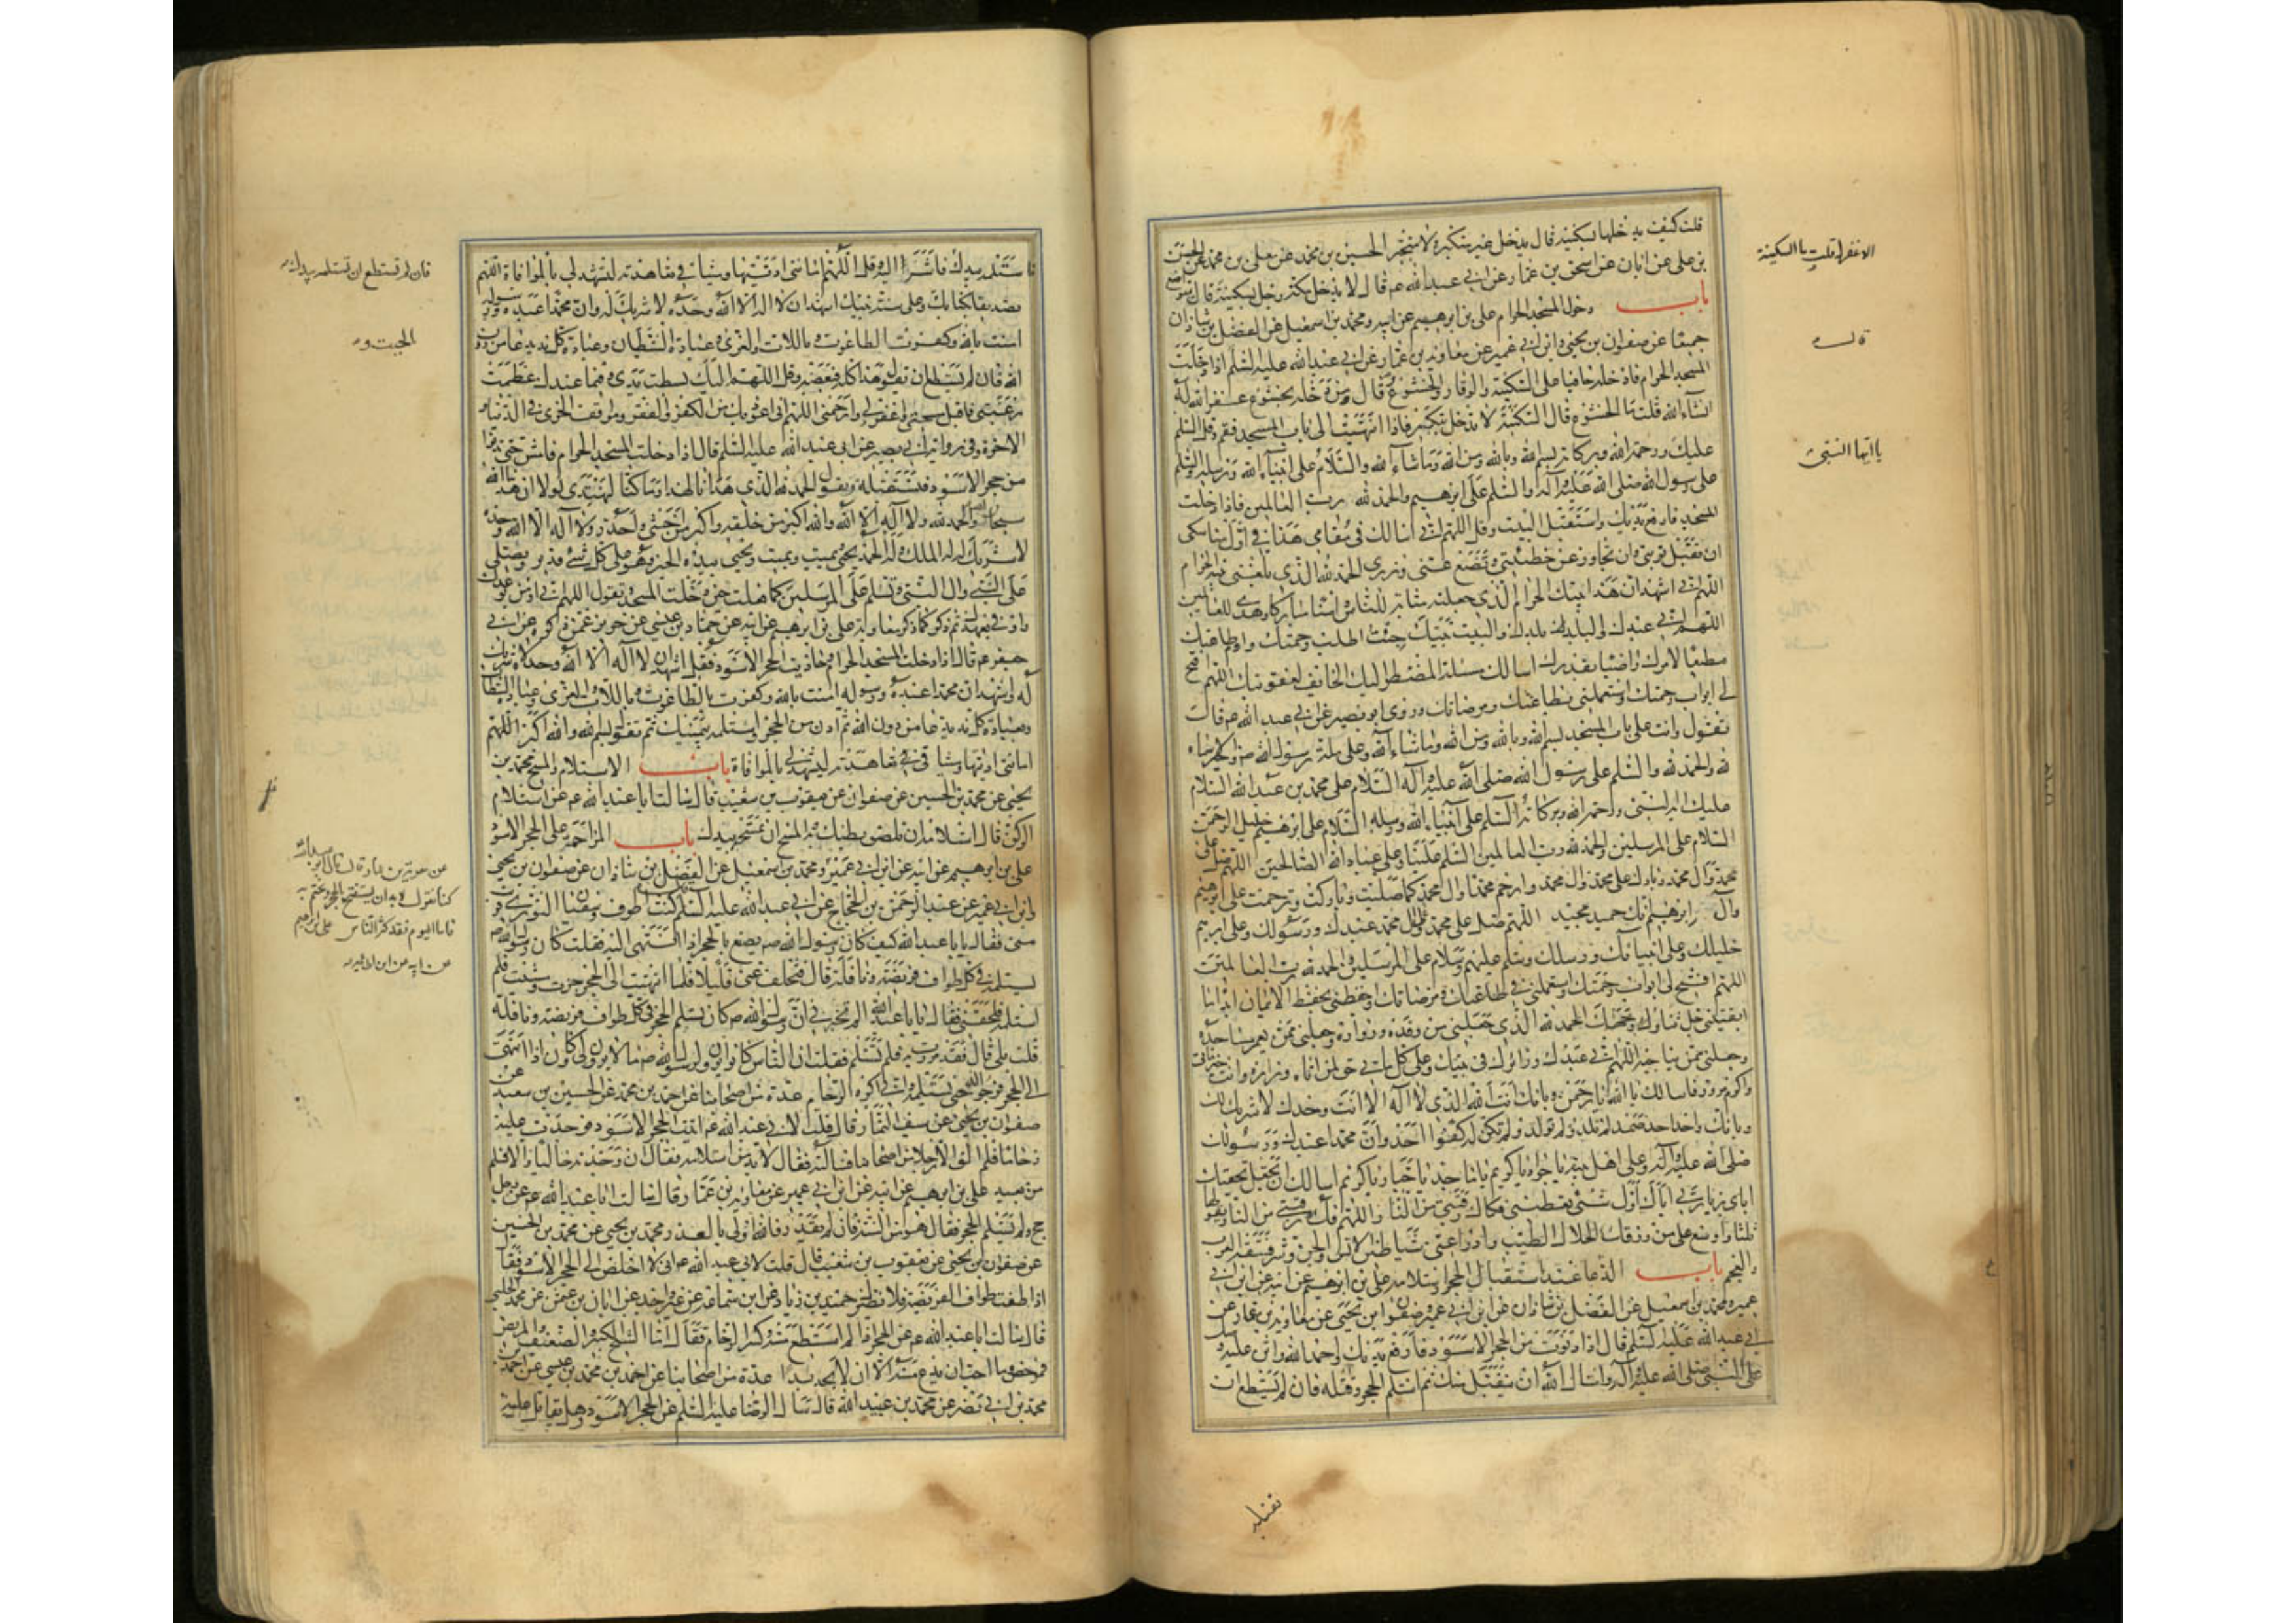 قلت كيف يدخلها بسكينة قال يدخل غير متكبر ولا متجبر الحسين بن محمد عن معلى بن محمد عن الحسن
بن على عن ابان عن اسحق بن عمار عن ابى عبد الله عم قال لا يدخل مكة رجل بسكينة قال
باب دخول المسجد الحرام على بن ابرهيم عن ابيه ومحمد بن اسمعيل عن الفضل بن شاذان
جميعا عن صفوان بن يحيى وابن ابى عمير عن معاوية بن عمار عن ابى عبد الله عليه السلم اذا دخلت
المسجد الحرام فادخله حافيا على السكينة والوقار والخشوع وقال من دخله بخشوع غفر الله له
انشاء الله قلت ما الخشوع قال السكينة لا تدخل بتكبر فاذا انتهيت الى باب المسجد فقم وقل السلم
عليك ورحمة الله وبركاته بسم الله وبالله ومن الله وما شاء الله والسلام على انبياء الله ورسله والسلم
على رسول الله صلى الله عليه وآله والسلم على ابرهيم والحمد لله رب العالمين فاذا دخلت
المسجد فارفع يديك واستقبل البيت وقل اللهم انى اسالك فى مقامى هذا فى اول مناسكى
ان تقبل توبتى وان تجاوز عن خطيئتى وتضع عنى وزرى الحمد لله الذى بلغنى بيته الحرام
اللهم انى اشهد ان هذا بيتك الحرام الذى جعلته مثابة للناس وامنا مباركا وهدى للعالمين
اللهم انى عبدك والبلد بلدك والبيت بيتك جئت اطلب رحمتك واؤم طاعتك
مطيعا لامرك راضيا بقدرك اسالك مسئلة المضطر اليك الخائف لعقوبتك اللهم افتح
لى ابواب رحمتك واستعملنى بطاعتك ومرضاتك وروى ابو بصير عن ابى عبد الله عم قال
تقول وانت على باب المسجد بسم الله وبالله ومن الله وما شاء الله وعلى ملة رسول الله
لله والحمد لله والسلم على رسول الله صلى الله عليه وآله السلام على محمد بن عبد الله السلام
عليك ايها النبى ورحمة الله وبركاته السلم على انبياء الله ورسله السلام على ابرهيم خليل الرحمن
السلام على المرسلين والحمد لله رب العالمين السلم علينا وعلى عباد الله الصالحين اللهم صل على
محمد وآل محمد وبارك على محمد وال محمد وارحم محمدا وال محمد كما صليت وباركت وترحمت على ابرهيم
وآل ابرهيم انك حميد مجيد اللهم صل على محمد وآل محمد عبدك ورسولك وعلى ابرهيم
خليلك وعلى انبيائك ورسلك وسلم عليهم وسلام على المرسلين والحمد لله رب العالمين
اللهم افتح لى ابواب رحمتك واستعملنى فى طاعتك ومرضاتك واحفظنى بحفظ الايمان ابدا ما
ابقيتنى جل ثناؤك وجهك الحمد لله الذى جعلنى من وفده وزواره وجعلنى ممن يعمر مساجده
وجعلنى ممن يناجيه اللهم انى عبدك وزائرك فى بيتك وعلى كل ماتى حق لمن اتاه وزاره وانت خير ماتى
واكرم مزور فاسالك يا الله يا رحمن وبانك انت الله الذى لا اله الا انت وحدك لا شريك لك
وبانك واحد احد صمد لم تلد ولم تولد ولم يكن له كفوا احد وان محمدا عبدك ورسولك
صلى الله عليه وآله وعلى اهل بيته يا جواد يا كريم يا ماجد يا جبار يا كريم اسالك ان تجعل تحفتك
اياى بزيارتى اياك اول شئ تعطينى فكاك رقبتى من النار اللهم فك رقبتى من النار تقولها
ثلثا واوسع على من رزقك الحلال الطيب وادرا عنى شر شياطين الانس والجن وشر فسقة العرب
والعجم باب الدعاء عند استقبال الحجر واستلامه على بن ابرهيم عن ابيه عن ابن ابى
عمير ومحمد بن اسمعيل عن الفضل بن شاذان عن ابن ابى عمير وصفوان بن يحيى عن معاوية بن عمار عن
ابى عبد الله عليه السلم قال اذا دنوت من الحجر الاسود فارفع يديك واحمد الله واثن عليه وصل
على النبى صلى الله عليه وآله واسال الله ان يتقبل منك ثم استلم الحجر وقبله فان لم تستطع ان
الا غفر له قلت بالسكينة
قال
يا ايها النبى
تقبله
فاستلمه بيدك فاشر اليه وقل اللهم امانتى اديتها وميثاقى تعاهدته لتشهد لى بالموافاة اللهم
تصديقا بكتابك وعلى سنة نبيك اشهد ان لا اله الا الله وحده لا شريك له وان محمدا عبده ورسوله
امنت بالله وكفرت بالطاغوت وباللات والعزى وعبادة الشيطان وعبادة كل ند يدعا من دون
الله فان لم تستطع ان تقول هذا كله فبعضه وقل اللهم اليك بسطت يدى وفيما عندك عظمت
رغبتى فاقبل سبحتى واغفر لى وارحمنى اللهم انى اعوذ بك من الكفر والفقر ومواقف الخزى فى الدنيا و
الاخرة وفى رواية ابى بصير عن ابى عبد الله عليه السلم قال اذا دخلت المسجد الحرام فامش حتى تدنو
من حجر الاسود فتستقبله وتقول الحمد لله الذى هدانا لهذا وما كنا لنهتدى لولا ان هدانا الله
سبحان الله والحمد لله ولا اله الا الله والله اكبر اكبر من خلقه واكبر ممن اخشى واحذر ولا اله الا الله وحده
لا شريك له له الملك وله الحمد يحيى ويميت ويميت ويحيى بيده الخير وهو على كل شئ قدير وتصلى
على النبى وال النبى وتسلم على المرسلين كما فعلت حين دخلت المسجد وتقول اللهم انى اومن بوعدك
واوفى بعهدك ثم ذكر كما ذكر معاوية على بن ابرهيم عن ابيه عن حماد بن عيسى عن حريز عمن ذكره عن ابى
جعفر عم قال اذا دخلت المسجد الحرام وحاذيت الحجر الاسود فقل اشهد ان لا اله الا الله وحده لا شريك
له واشهد ان محمدا عبده ورسوله امنت بالله وكفرت بالطاغوت وباللات والعزى وعبادة الشيطان
وبعبادة كل ند يدعا من دون الله ثم ادن من الحجر واستلمه بيمينك ثم تقول بسم الله والله اكبر اللهم
امانتى اديتها وميثاقى تعاهدته ليشهد لى بالموافاة باب الاستلام والمسح محمد بن
يحيى عن محمد بن الحسين عن صفوان عن يعقوب بن شعيب قال سالت ابا عبد الله عم عن استلام
الركن قال استلامه ان تلصق بطنك به والمسح ان تمسحه بيدك باب المزاحمة على الحجر الاسود
على بن ابرهيم عن ابيه عن ابن ابى عمير ومحمد بن اسمعيل عن الفضل بن شاذان عن صفوان بن يحيى
وابن ابى عمير عن عبد الرحمن بن الحجاج عن ابى عبد الله عليه السلم كنت اطوف وسفين الثورى قريب
منى فقال يا ابا عبد الله كيف كان رسول الله صم يصنع بالحجر اذا انتهى اليه فقلت كان رسول الله صم
يستلمه فى كل طواف فريضة ونافلة قال فتخلف عنى قليلا فلما انتهيت الى الحجر جزت ومشيت فلم
استلمه فلحقنى فقال يا ابا عبد الله الم تخبرنى ان رسول الله صم كان يستلم الحجر فى كل طواف فريضة ونافلة
قلت بلى قال فقد مررت به فلم تستلم فقلت ان الناس كانوا يرون لرسول الله صم ما لا يرون لى وكان اذا انتهى
الى الحجر افرجوا له حتى يستلمه وانى اكره الزحام عدة من اصحابنا عن احمد بن محمد عن الحسين بن سعيد عن
صفوان بن يحيى عن سيف التمار قال قلت لابى عبد الله عم اتيت الحجر الاسود فوجدت عليه
زحاما فلم الق الا رجلا من اصحابنا فسالته فقال لا بد من استلامه فقال ان وجدته خاليا والا فسلم
من بعيد على بن ابرهيم عن ابيه عن ابن ابى عمير عن معاوية بن عمار قال سالت ابا عبد الله عم عن رجل
حج ولم يستلم الحجر فقال هو من السنة فان لم يقدر فالله اولى بالعذر ومحمد بن يحيى عن محمد بن الحسين
عن صفوان بن يحيى عن يعقوب بن شعيب قال قلت لابى عبد الله عم انى لا اخلص الى الحجر الاسود فقال
اذا طفت طواف الفريضة فلا يضرك حميد بن زياد عن ابن سماعة عن غير واحد عن ابان بن عثمن عن محمد الحلبى
قال سالت ابا عبد الله عم عن الحجر اذا لم استطع مسه وكثر الزحام فقال اما الشيخ الكبير والضعيف والمريض
فمرخص وما احب ان يدع مسه الا ان لا يجد بدا عدة من اصحابنا عن احمد بن محمد بن عيسى عن احمد بن
محمد بن ابى نصر عن محمد بن عبيد الله قال سال الرضا عليه السلم عن الحجر الاسود وهل يقاتل عليه
فان لم تستطع ان تستلمه بيدك
الجبت و
عن معوية بن عمار قال قال ابو عبد الله
كنا نقول لا بد ان يستفتح بالحجر ويختم به
فاما اليوم فقد كثر الناس على بن ابرهيم
عن ابيه عن ابن ابى عمير